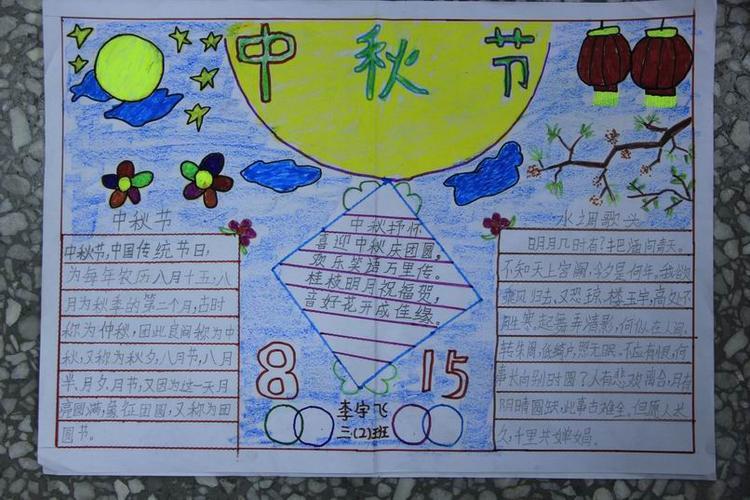 中秋节
中秋节
中秋节,中国传统节日,
为每年农历八月十五,八
月为秋季的第二个月,古时
称为仲秋,因此民间称为中
秋,又称为秋夕,八月节,八月
半,月夕,月节,又因为这一天月
亮圆满,象征团圆,又称为团
圆节。
中秋抒怀
喜迎中秋庆团圆,
欢乐笑涛万里传。
桂枝明月祝福贺,
喜好花开成佳缘。
8 15
李宇飞
三(2)班
水调歌头
明月几时有?把酒问青天。
不知天上宫阙,今夕是何年,我欲
乘风归去,又恐琼楼玉宇,高处不
胜寒,起舞弄清影,何似在人间,
转朱阁,低绮户,照无眠,不应有恨,何
事长向别时圆?人有悲欢离合,月有
阴晴圆缺,此事古难全,但愿人长
久,千里共婵娟。